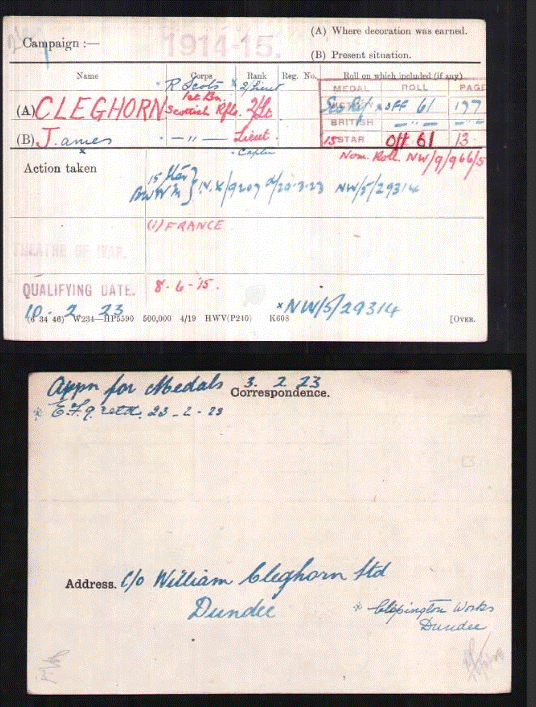 (A) Where decoration was earned.
Campaign :—
1914-15.
(B) Present situation.
Name Corps Rank Reg. No. Roll on which included (if any)
R Scots * 2/Lieut
MEDAL ROLL PAGE
(A) CLEGHORN 1st Bn. Scottish Rfls. 2/Lt
Off 61 197
BRITISH — " — — " —
(B) James — " — Lieut.
15 STAR Off 61 13.
* Captn
Nom. Roll NW/9/966/5
Action taken
15 Star
BWM } NW/5/29314
(1) FRANCE
THEATRE OF WAR.
QUALIFYING DATE. 8-6-15.
10. 2 23
* NW/5/29314
(6 34 46) W234—HP5590 500,000 4/19 HWV(P240) K608 [OVER.
Appn for Medals 3. 2. 23
Correspondence.
23-2-23
Address. C/o William Cleghorn Ltd
Dundee
* Clepington Works
Dundee